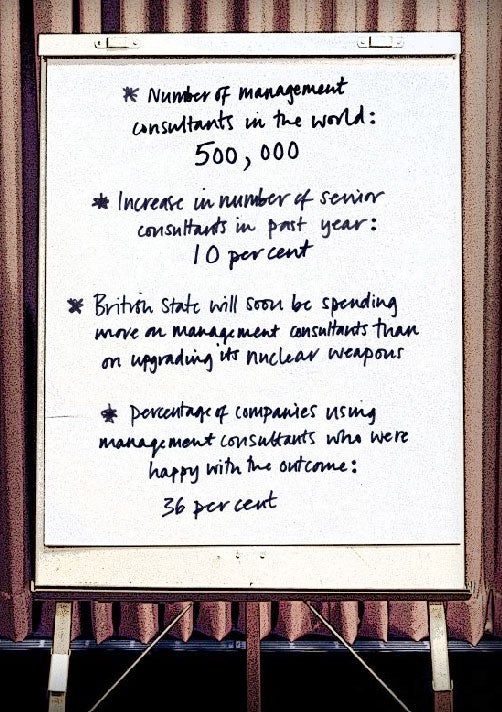 * Number of management
consultants in the world:
500,000
* Increase in number of senior
consultants in past year:
10 per cent
* British State will soon be spending
more on management consultants than
on upgrading its nuclear weapons
* percentage of companies using
management consultants who were
happy with the outcome:
36 per cent